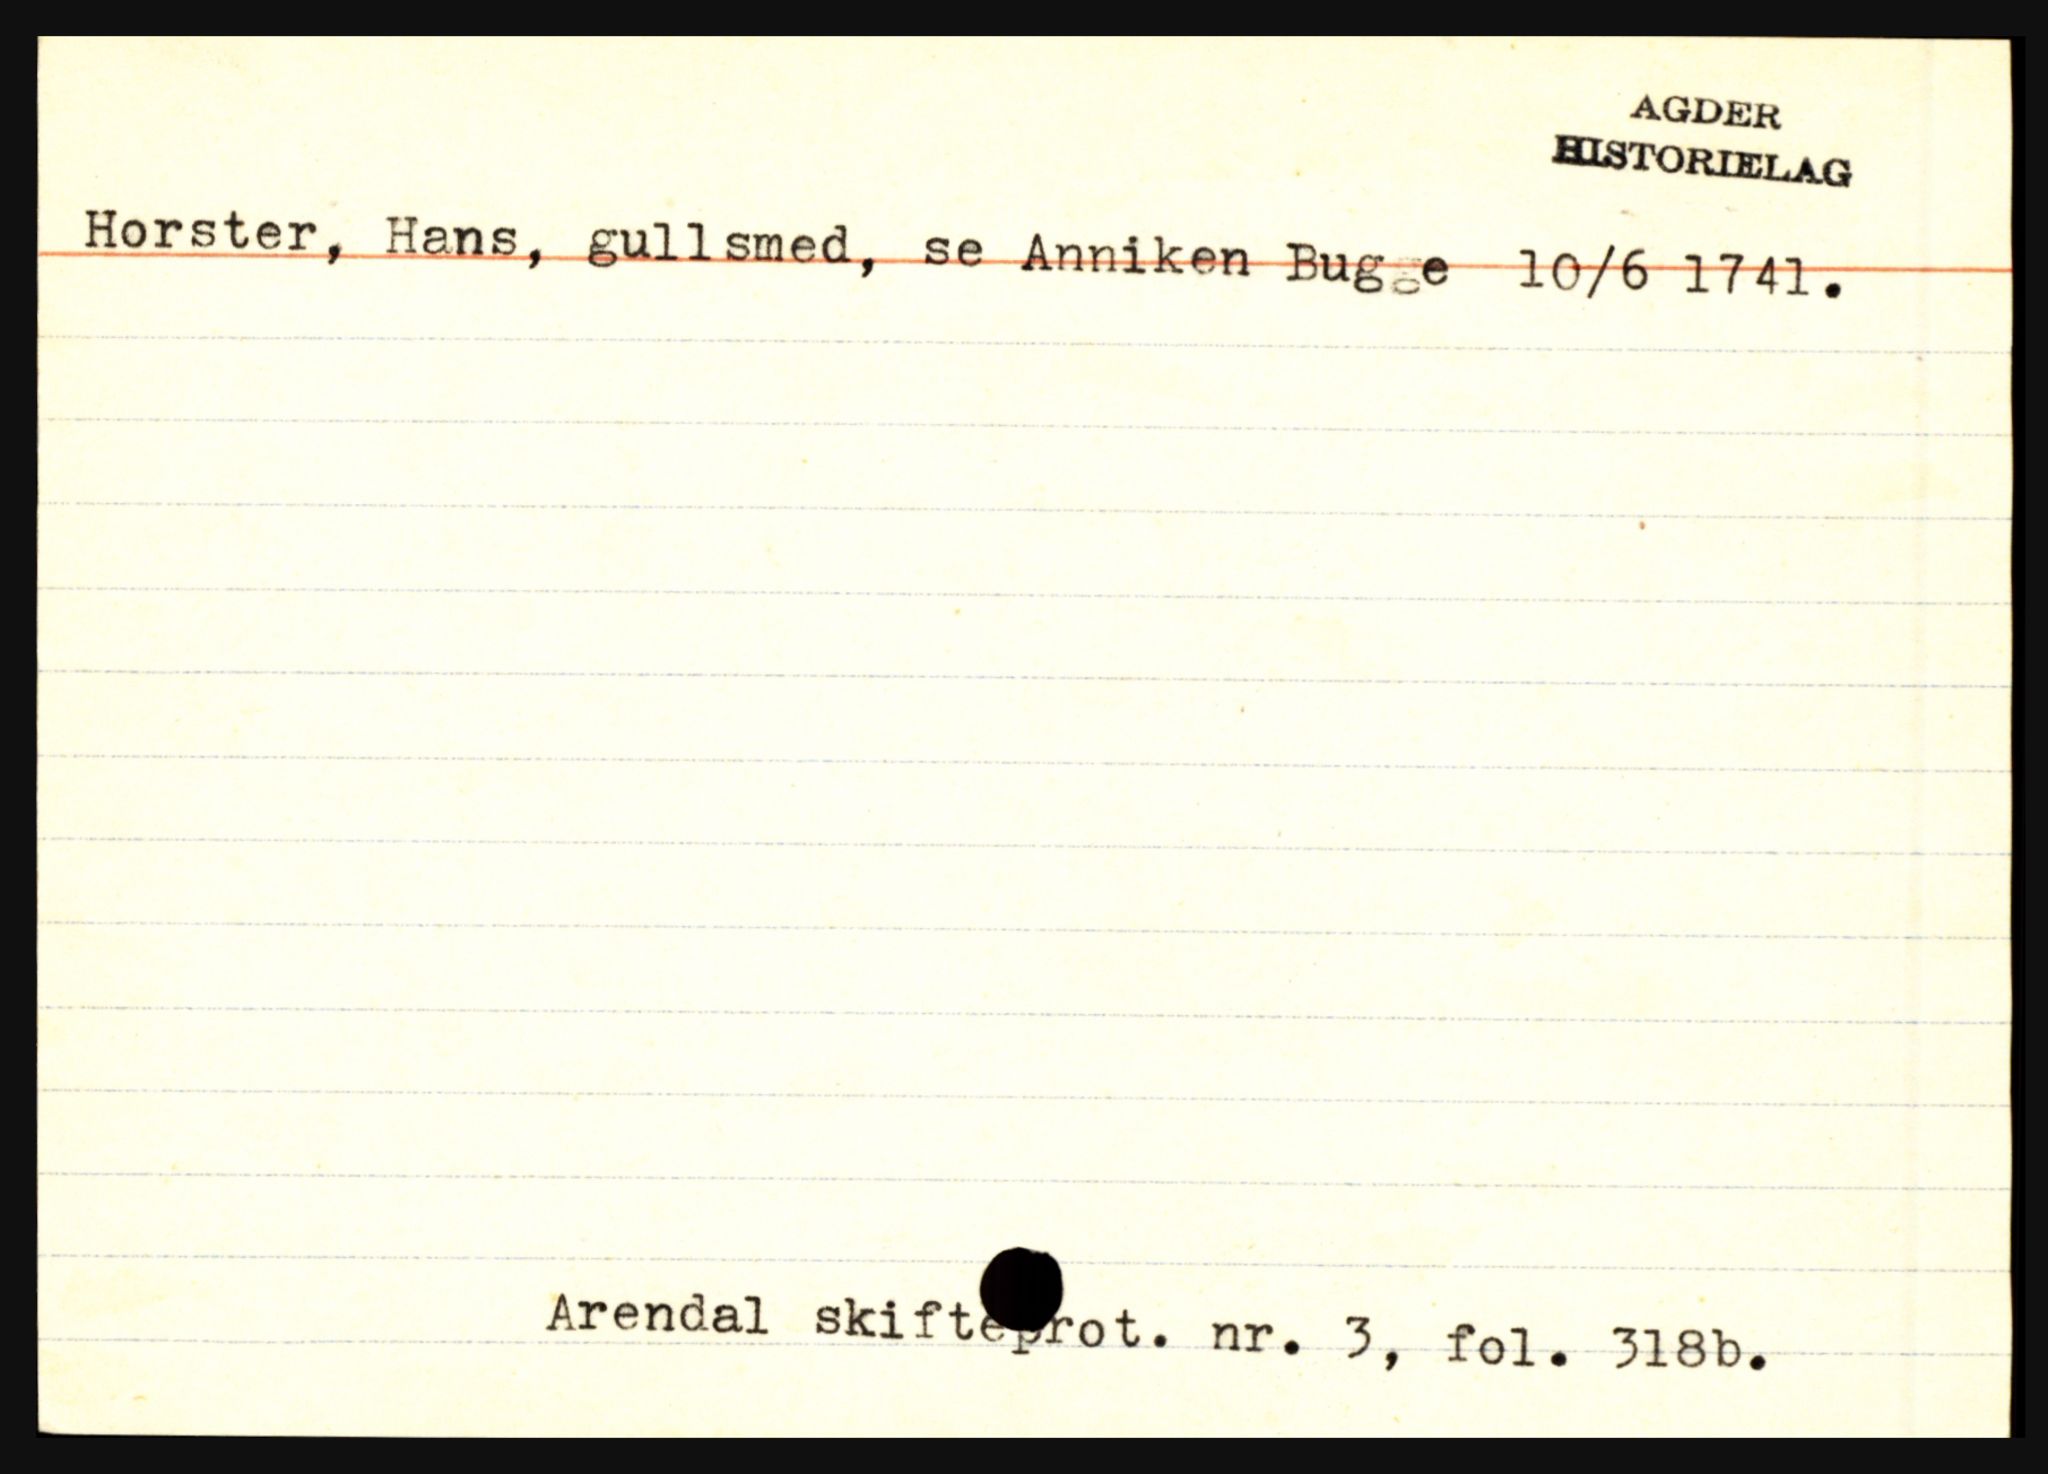 AGDER
HISTORIELAG
Horster, Hans, gullsmed, se Anniken Bugge 10/6 1741.
Arendal skifteprot. nr. 3, fol. 318b.